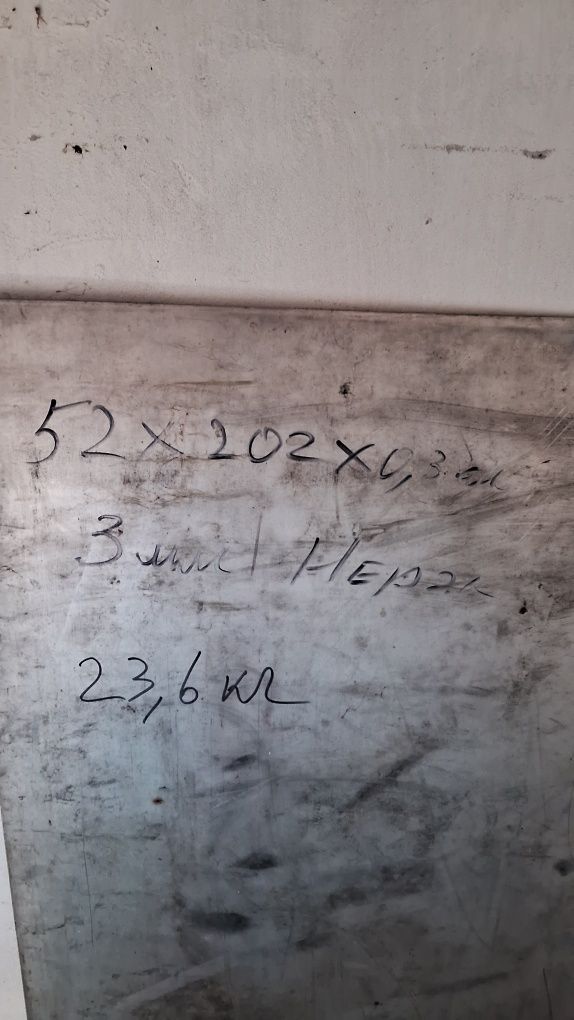 52×202×0,3см
3мм Нерж
23,6 кг